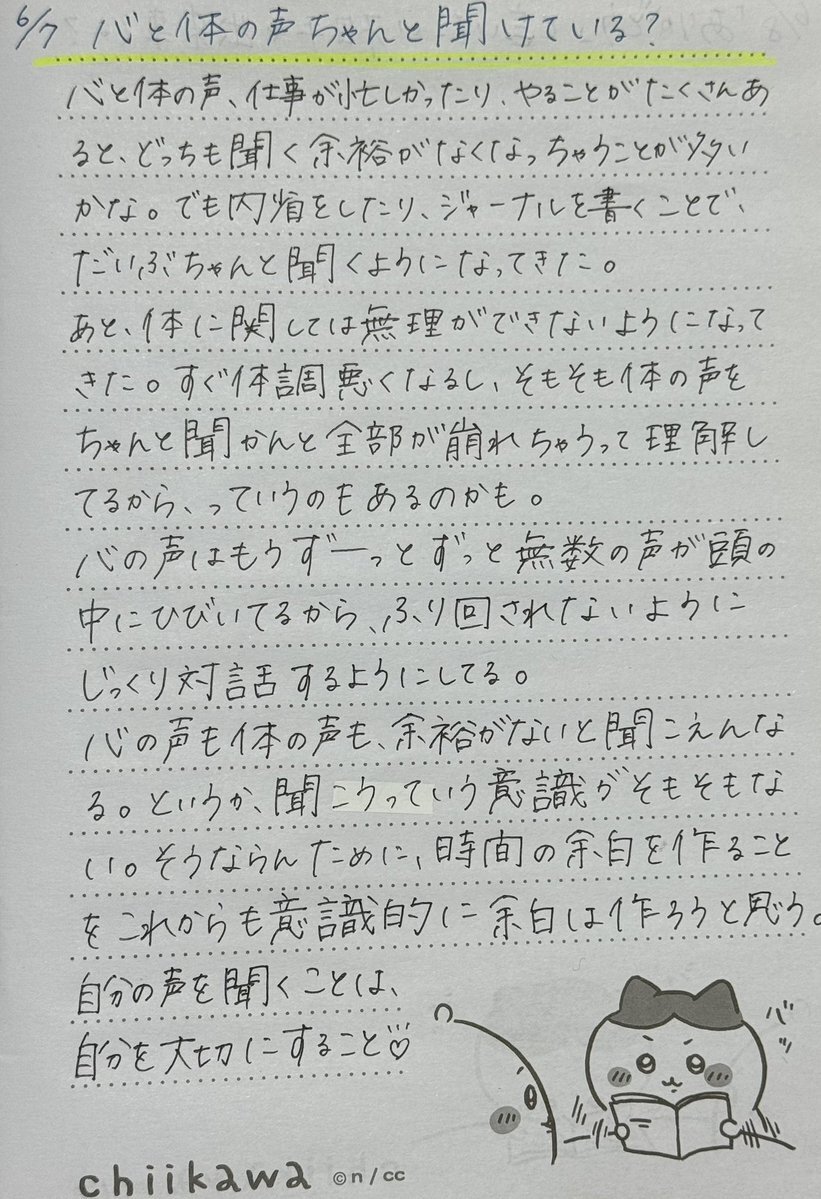 6/7 心と体の声ちゃんと聞けている?
心と体の声、仕事が忙しかったり、やることがたくさんあ
ると、どっちも聞く余裕がなくなっちゃうことが多い
かな。でも内省をしたり、ジャーナルを書くことで、
だいぶちゃんと聞くようになってきた。
あと、体に関しては無理ができないようになって
きた。すぐ体調悪くなるし、そもそも体の声を
ちゃんと聞かんと全部が崩れちゃうって理解し
てるから、っていうのもあるのかも。
心の声はもうずーっとずっと無数の声が頭の
中にひびいてるから、ふり回されないように
じっくり対話するようにしてる。
心の声も体の声も、余裕がないと聞こえんな
る。というか、聞こうっていう意識がそもそもな
い。そうならんために、時間の余白を作ること
をこれからも意識的に余白は作ろうと思う。
自分の声を聞くことは、
自分を大切にすること♡
バッ
chiikawa ©n/cc